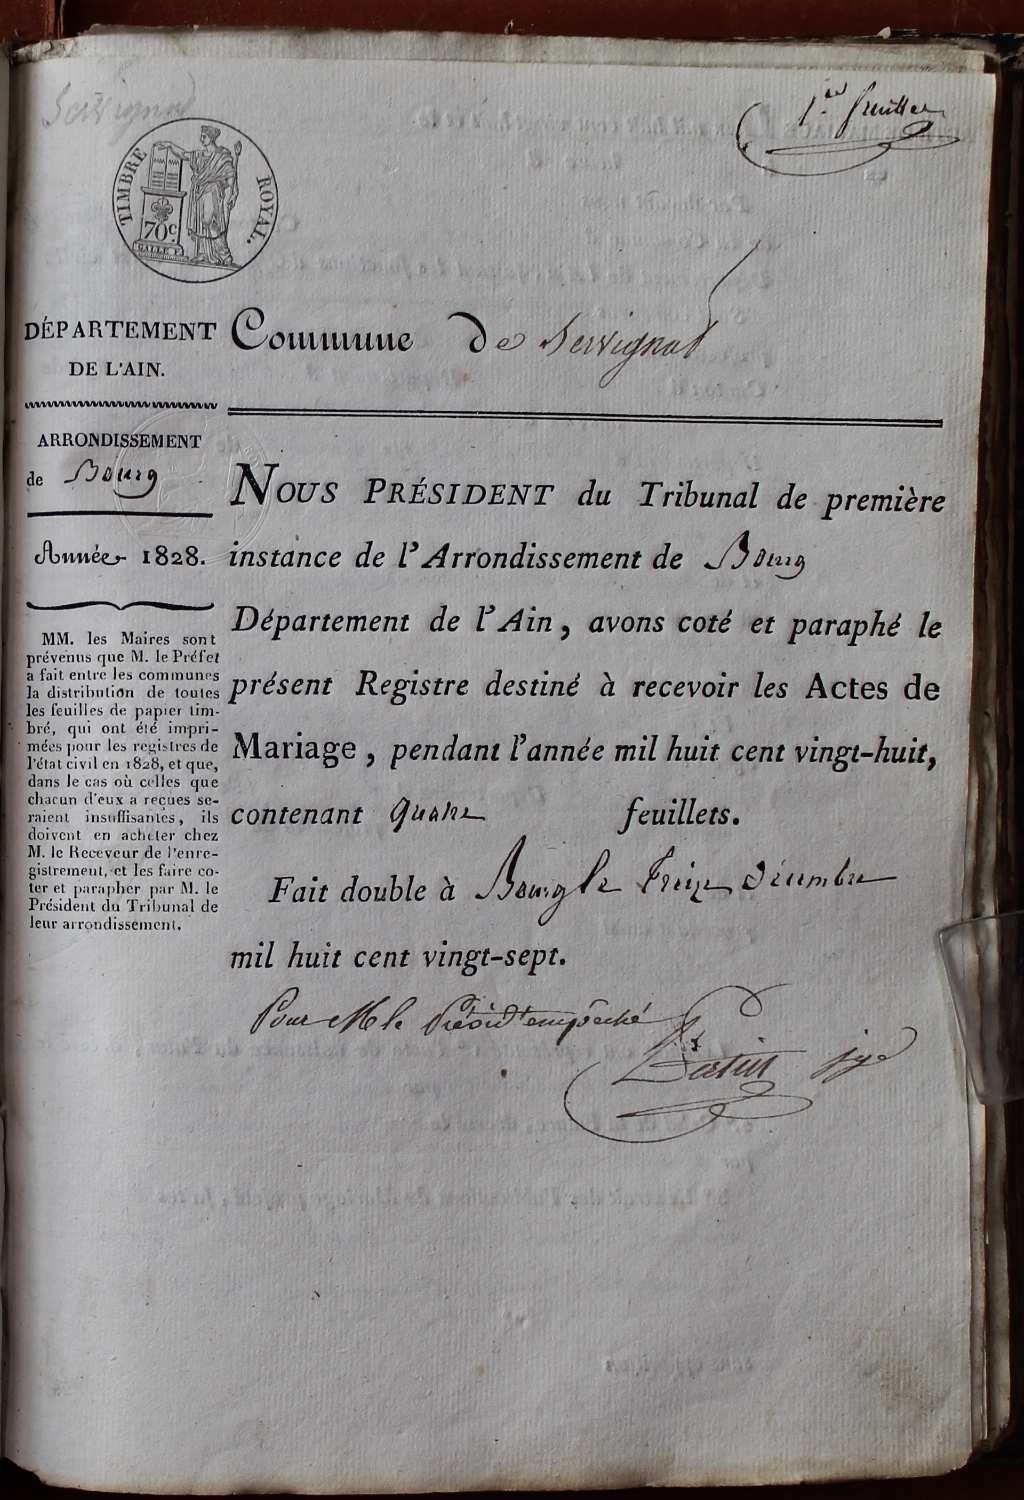 Servignat
1er feuillet
TIMBRE ROYAL.
70c.
GALLE F.
DÉPARTEMENT
DE L'AIN.
Commune de Servignat
ARRONDISSEMENT
de Bourg
Année 1828.
MM. les Maires sont
prévenus que M. le Préfet
a fait entre les communes
la distribution de toutes
les feuilles de papier tim-
bré, qui ont été impri-
mées pour les registres de
l'état civil en 1828, et que,
dans le cas où celles que
chacun d'eux a reçues se-
raient insuffisantes, ils
doivent en acheter chez
M. le Receveur de l'enre-
gistrement, et les faire co-
ter et parapher par M. le
Président du Tribunal de
leur arrondissement.
NOUS PRÉSIDENT du Tribunal de première
instance de l'Arrondissement de Bourg
Département de l'Ain, avons coté et paraphé le
présent Registre destiné à recevoir les Actes de
Mariage, pendant l'année mil huit cent vingt-huit,
contenant quatre feuillets.
Fait double à Bourg le treize décembre
mil huit cent vingt-sept.
Pour M le Présidt empêché